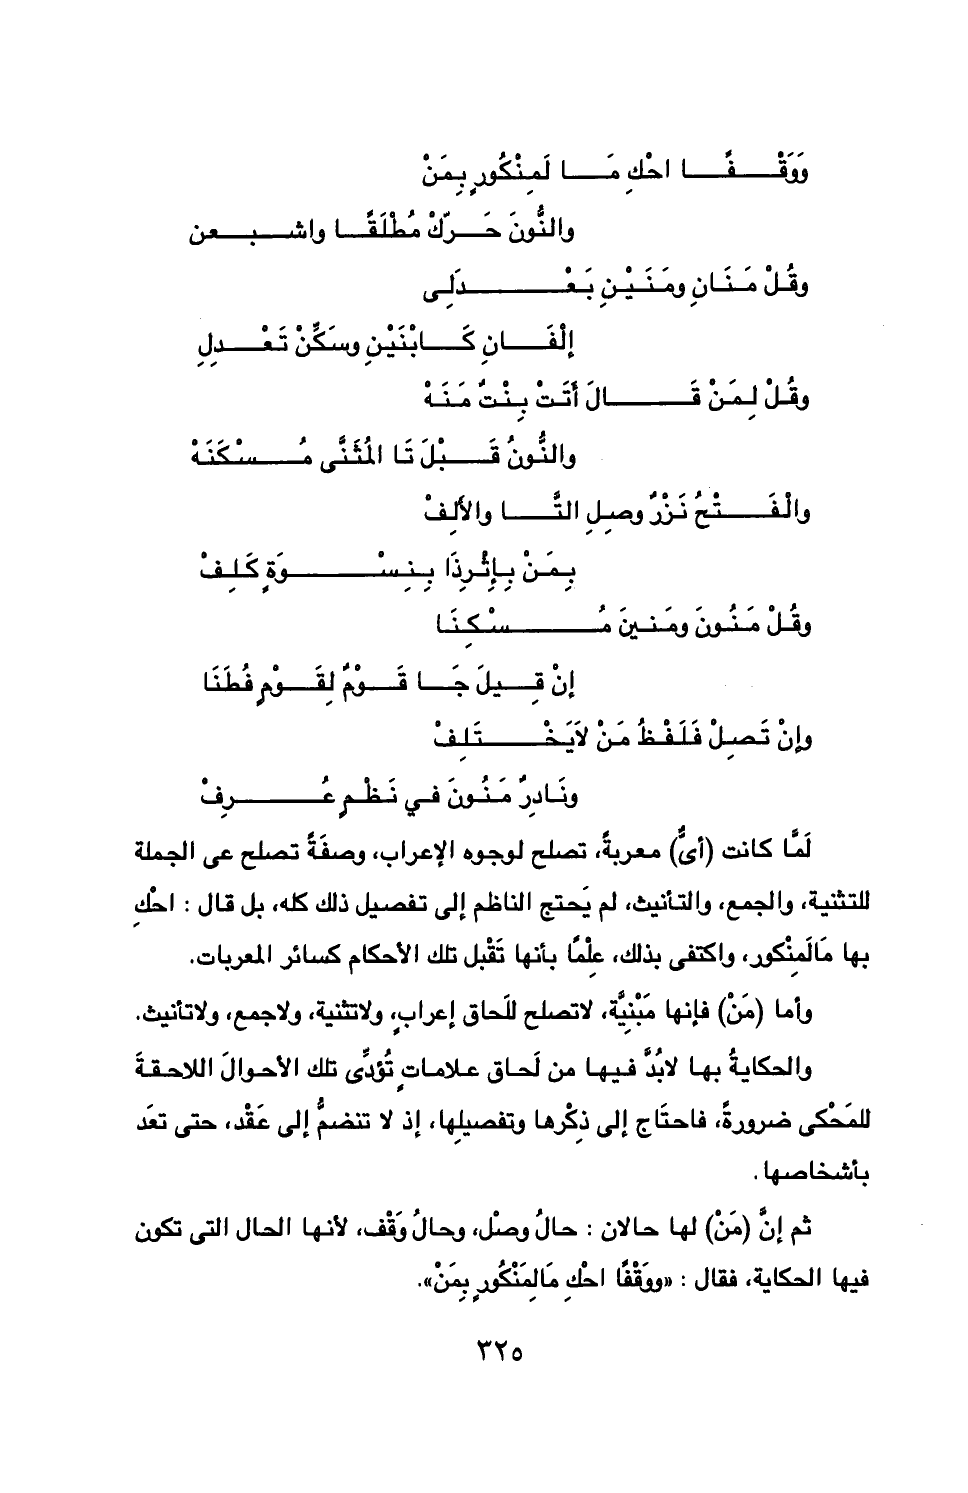 وَوَقْفًا احْكِ مَا لَمِنْكُورٍ بِمَنْ
والنُّونَ حَرِّكْ مُطْلَقًا واشبعن
وقُلْ مَنَانِ ومَنَيْنِ بَعْدَلِى
إلْفَانِ كَابْنَيْنِ وسَكِّنْ تَعْدلِ
وقُلْ لِمَنْ قَالَ أتَتْ بِنْتٌ مَنَهْ
والنُّونُ قَبْلَ تَا المُثَنَّى مُسْكَنَهْ
والْفَتْحُ نَزْرٌ وصِلِ التَّا والألِفْ
بِمَنْ بِإثْرِذَا بِنِسْوَةٍ كَلِفْ
وقُلْ مَنُونَ ومَنِينَ مُسْكِنَا
إنْ قِيلَ جَا قَوْمٌ لِقَوْمٍ فُطَنَا
وإنْ تَصِلْ فَلَفْظُ مَنْ لاَيَخْتَلِفْ
ونَادِرٌ مَنُونَ في نَظْمٍ عُرِفْ
لَمَّا كانت (أىٌّ) معربةً، تصلح لوجوه الإعراب، وصفَةً تصلح عى الجملة
للتثنية، والجمع، والتأنيث، لم يَحتج الناظم إلى تفصيل ذلك كله، بل قال : احْكِ
بها مَالَمِنْكور، واكتفى بذلك، علْمًا بأنها تَقْبل تلك الأحكام كسائر المعربات.
وأما (مَنْ) فإنها مَبْنِيَّة، لاتصلح للَحاق إعرابٍ، ولاتثنية، ولاجمع، ولاتأنيث.
والحكايةُ بها لابُدَّ فيها من لَحاق علاماتٍ تُؤدِّى تلك الأحوالَ اللاحقةَ
للمَحْكى ضرورةً، فاحتَاج إلى ذِكْرها وتفصيلِها، إذ لا تنضمُّ إلى عَقْد، حتى تعَد
بأشخاصها.
ثم إنَّ (مَنْ) لها حالان : حالُ وصْل، وحالُ وَقْف، لأنها الحال التى تكون
فيها الحكاية، فقال : «ووَقْفًا احْكِ مَالِمَنْكُورٍ بِمَنْ».
٣٢٥